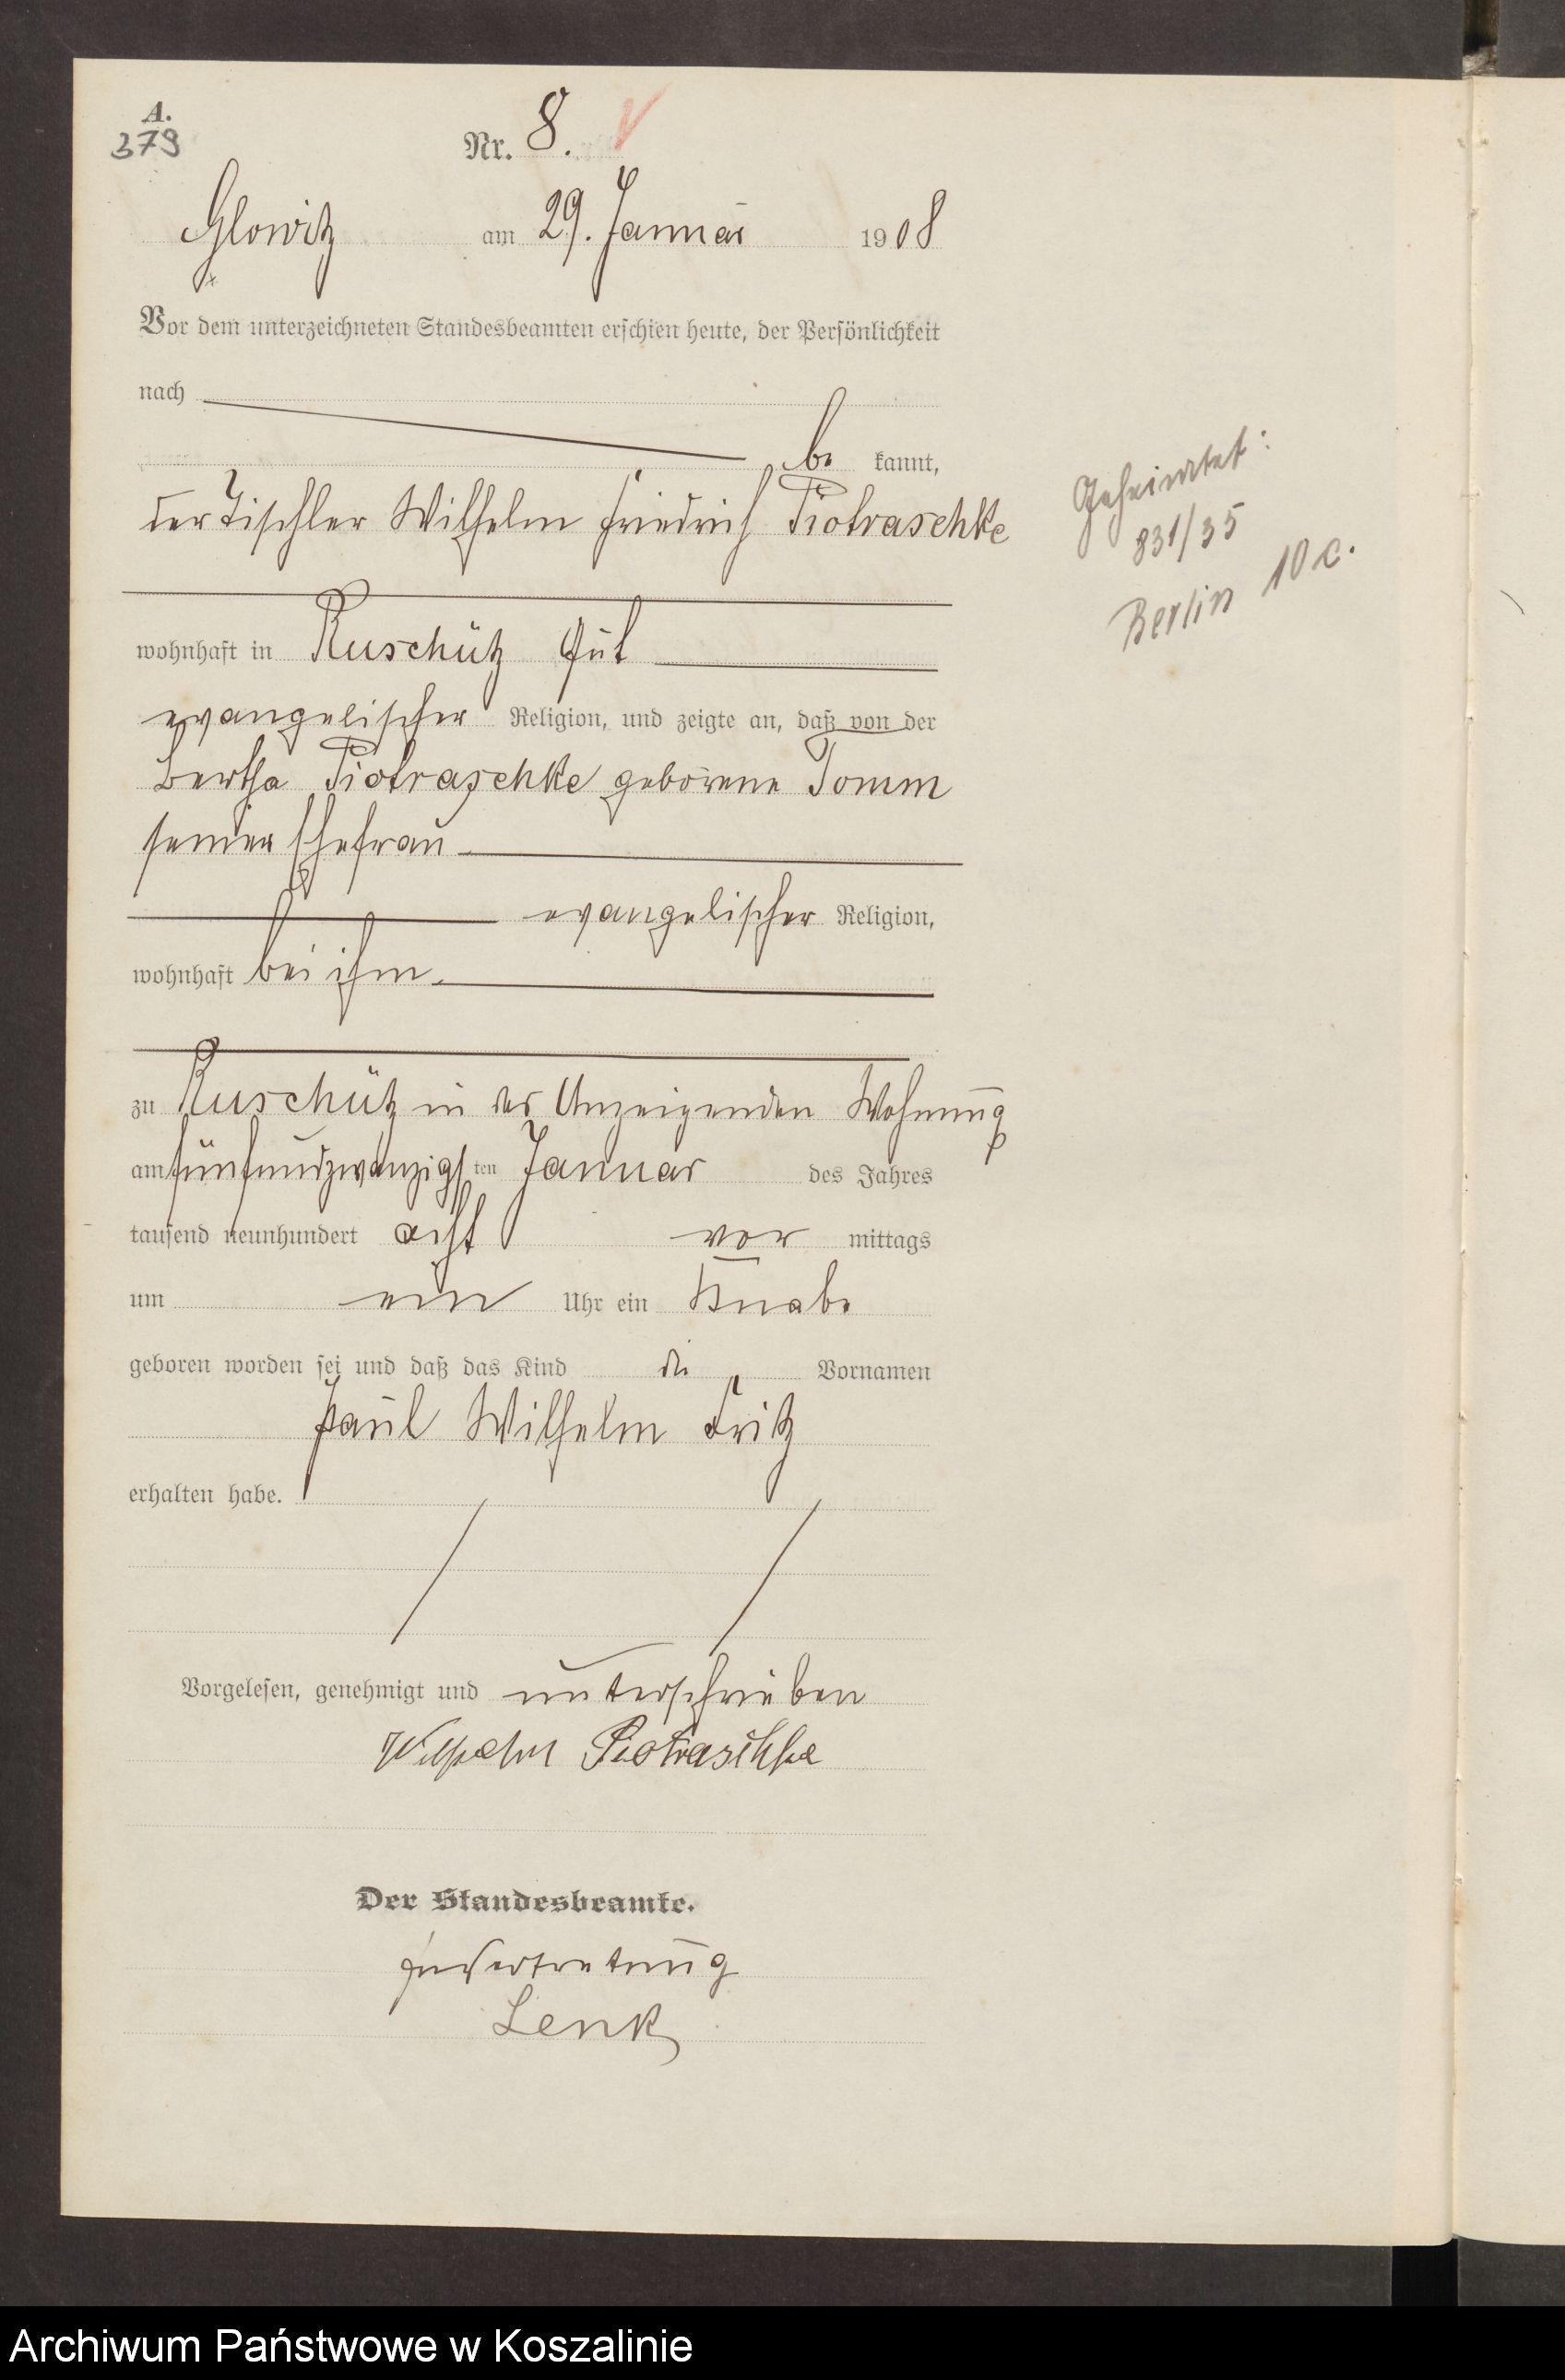 A.
379
Nr. 8.
Glowitz am 29. Januar 1908
Vor dem unterzeichneten Standesbeamten erschien heute, der Persönlichkeit
nach
be kannt,
der Tischler Wilhelm Friedrich Piotraschke
wohnhaft in Ruschütz Gut
evangelischer Religion, und zeigte an, daß von der
Bertha Piotraschke geborene Tomm
seiner Ehefrau
evangelischer Religion,
wohnhaft bei ihm.
zu Ruschütz in des Anzeigenden Wohnung
am fünfundzwanzigsten Januar des Jahres
tausend neunhundert acht vor mittags
um ein Uhr ein Knabe
geboren worden sei und daß das Kind die Vornamen
Paul Wilhelm Fritz
erhalten habe.
Vorgelesen, genehmigt und unterschrieben
Wilhelm Piotraschke
Der Standesbeamte.
In Vertretung
Lenk
Geheiratet:
831/35
Berlin 10c.
Archiwum Państwowe w Koszalinie